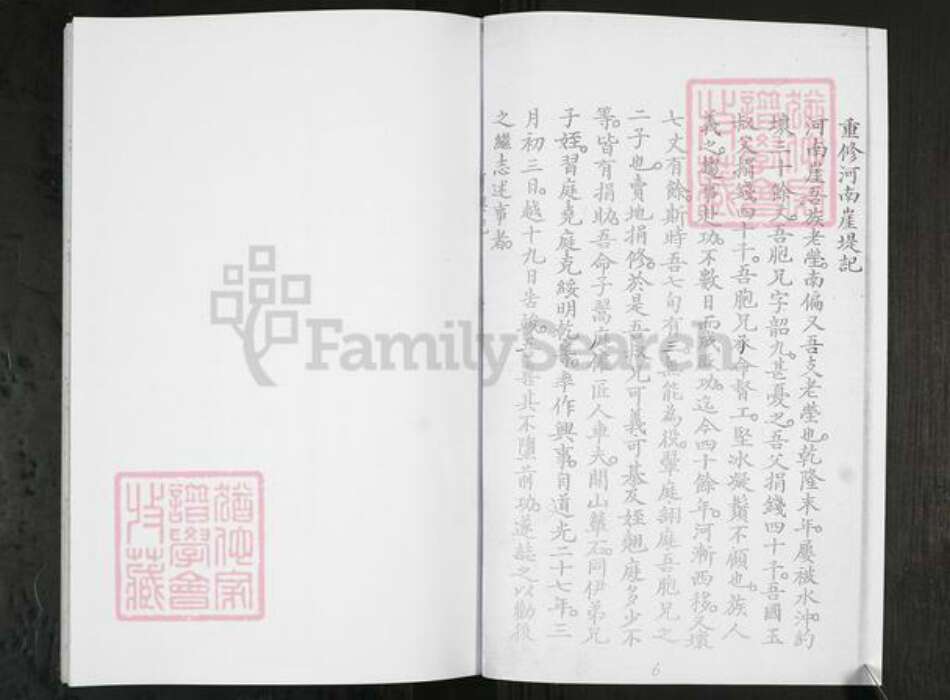 重修河南崖堤記
河南崖吾族老塋南偏又吾支老塋也乾隆末年屢被水沖約
壞三十餘丈吾胞兄字韶九甚憂之吾父捐錢四十千吾國玉
叔父捐錢四十千吾胞兄承命督工堅冰凝鬚不顧也族人
義之趨事赴功不數日而成功迄今四十餘年河漸西移又壞
七丈有餘斯時吾七旬有三無能為役肇庭翊庭吾胞兄之
二子也賣地捐修於是吾從兄可義可基及姪翹庭多少不
等皆有捐助吾命子翯庭催匠人車夫開山築石同伊弟兄
子姪習庭克庭克綏明乾等率作興事自道光二十七年三
月初三日越十九日告竣吾喜其不墮前功遂誌之以勸後
之繼志述事者
6
猶他家譜學會收藏
猶他家譜學會收藏
FamilySearch